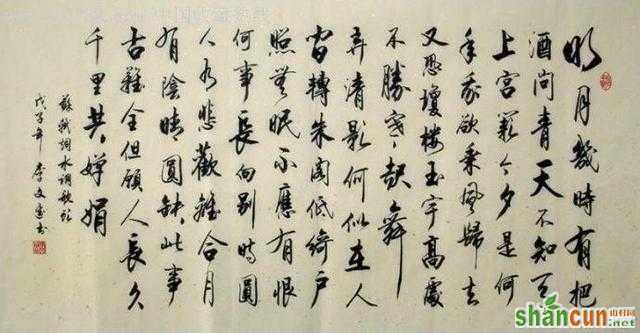 明月幾時有把
酒問青天不知天
上宮闕今夕是何
年我欲乘風歸去
又恐瓊樓玉宇高處
不勝寒起舞
弄清影何似在人
間轉朱閣低綺戶
照無眠不應有恨
何事長向別時圓
人有悲歡離合月
有陰晴圓缺此事
古難全但願人長久
千里共嬋娟
蘇軾詞水調歌頭
戊子年李文書
shancun
山村网
.net